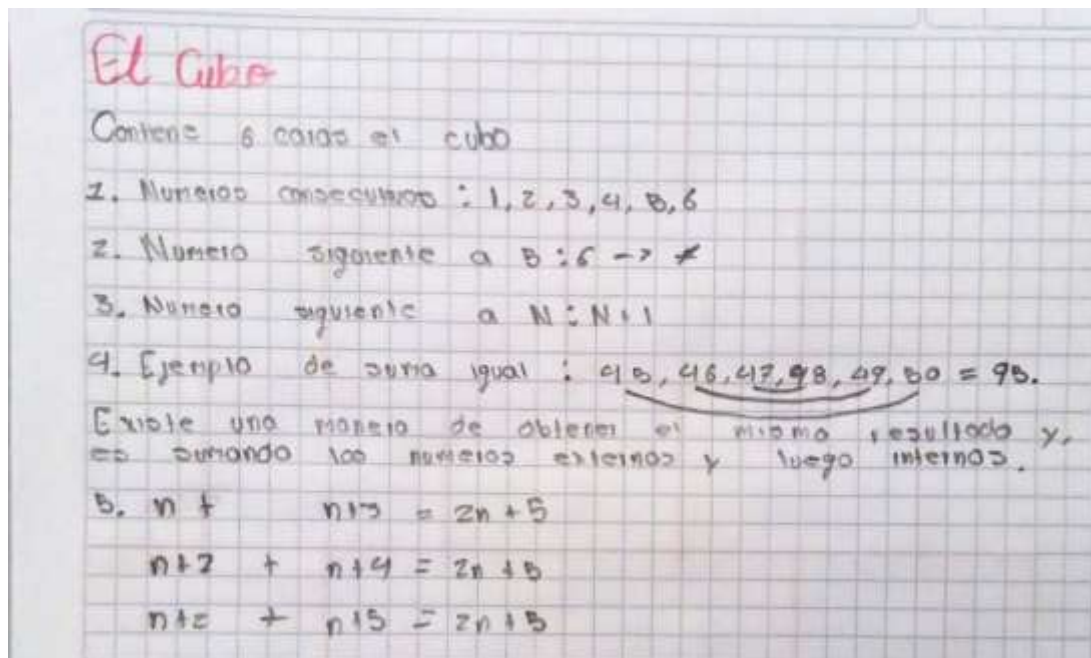 El Cubo
Contiene 6 caras el cubo
1. Numeros consecutivos : 1, 2, 3, 4, 5, 6
2. Numero siguiente a 5 : 6 ->
3. Numero siguiente a N : N+1
4. Ejemplo de suma igual : 45, 46, 47, 48, 49, 50 = 95.
Existe una manera de obtener el mismo resultado y,
es sumando los numeros externos y luego internos.
5. n + = 2n + 5
+ n+4 = 2n + 5
+ = 2n + 5